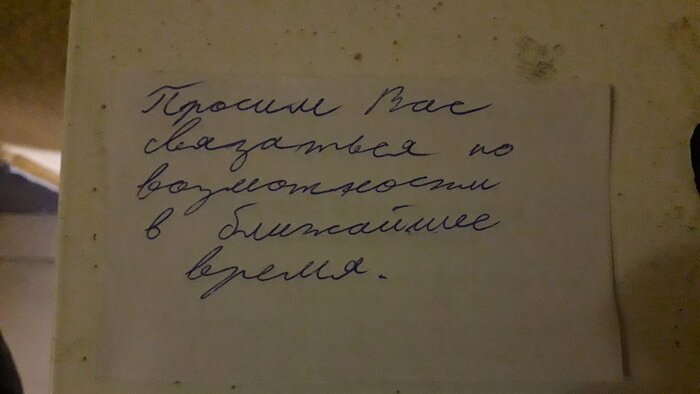 Просим Вас
связаться по
возможности
в ближайшее
время.